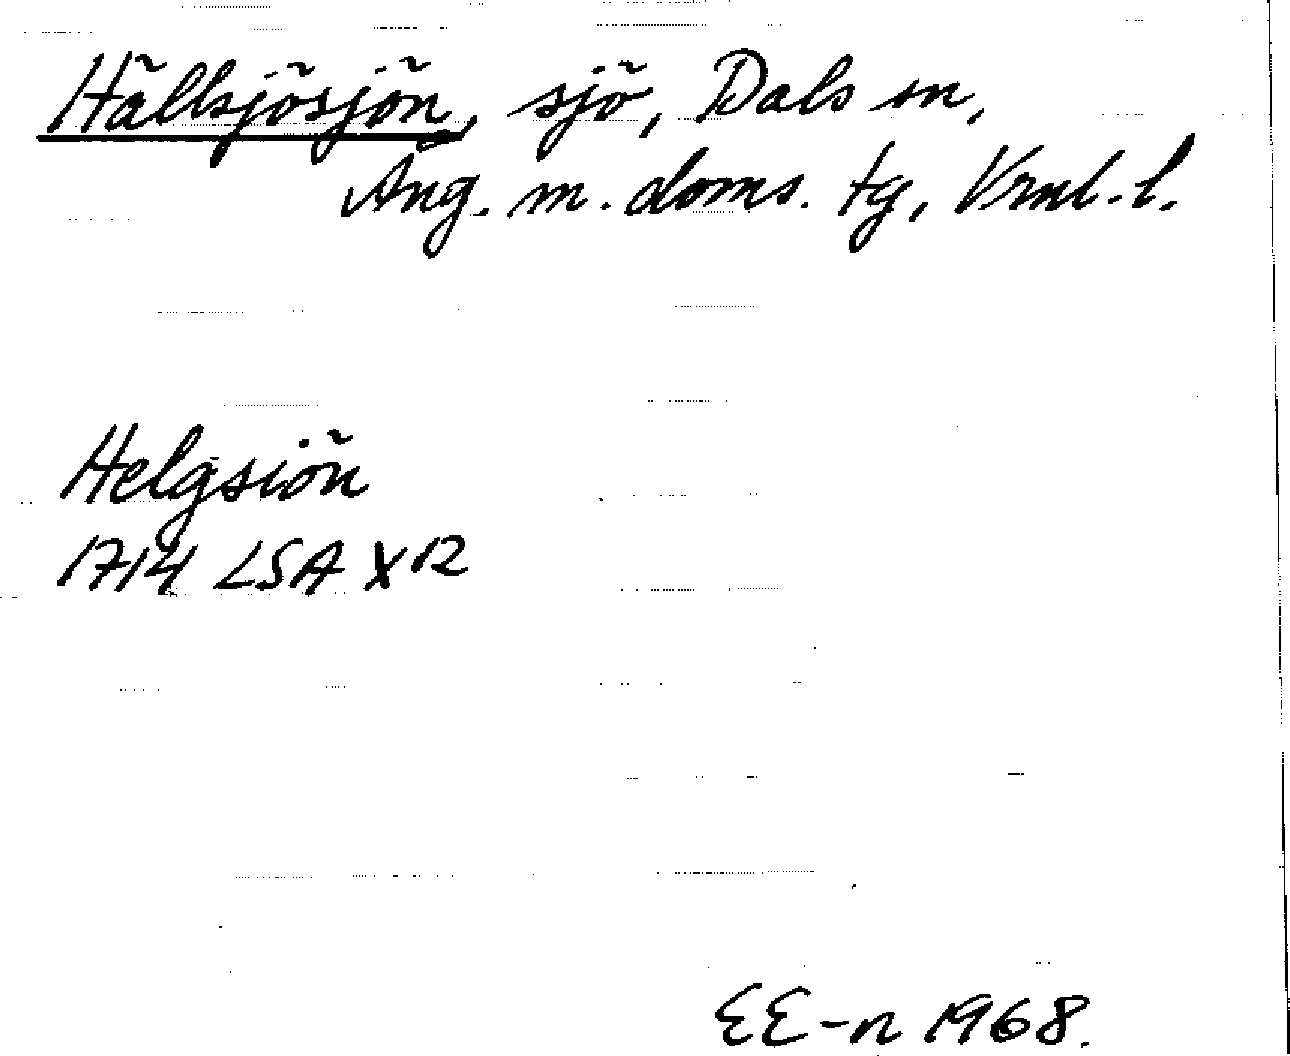 Hällsjösjön, sjö, Dals sn,
Ång. m. doms. tg, Vrml. l.
Helgsiön
1714 LSA X 12
EE-n 1968.